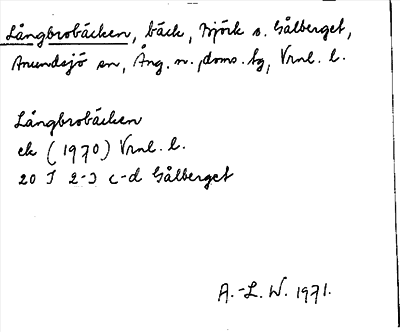 Långbrobäcken, bäck, Björk s. Gålberget,
Anundsjö sn, Ång. n., doms. bg, Vrnl. l.
Långbrobäcken
ek (1970) Vrnl. l.
20 J 2-3 c-d Gålberget
A.-L. W. 1971.